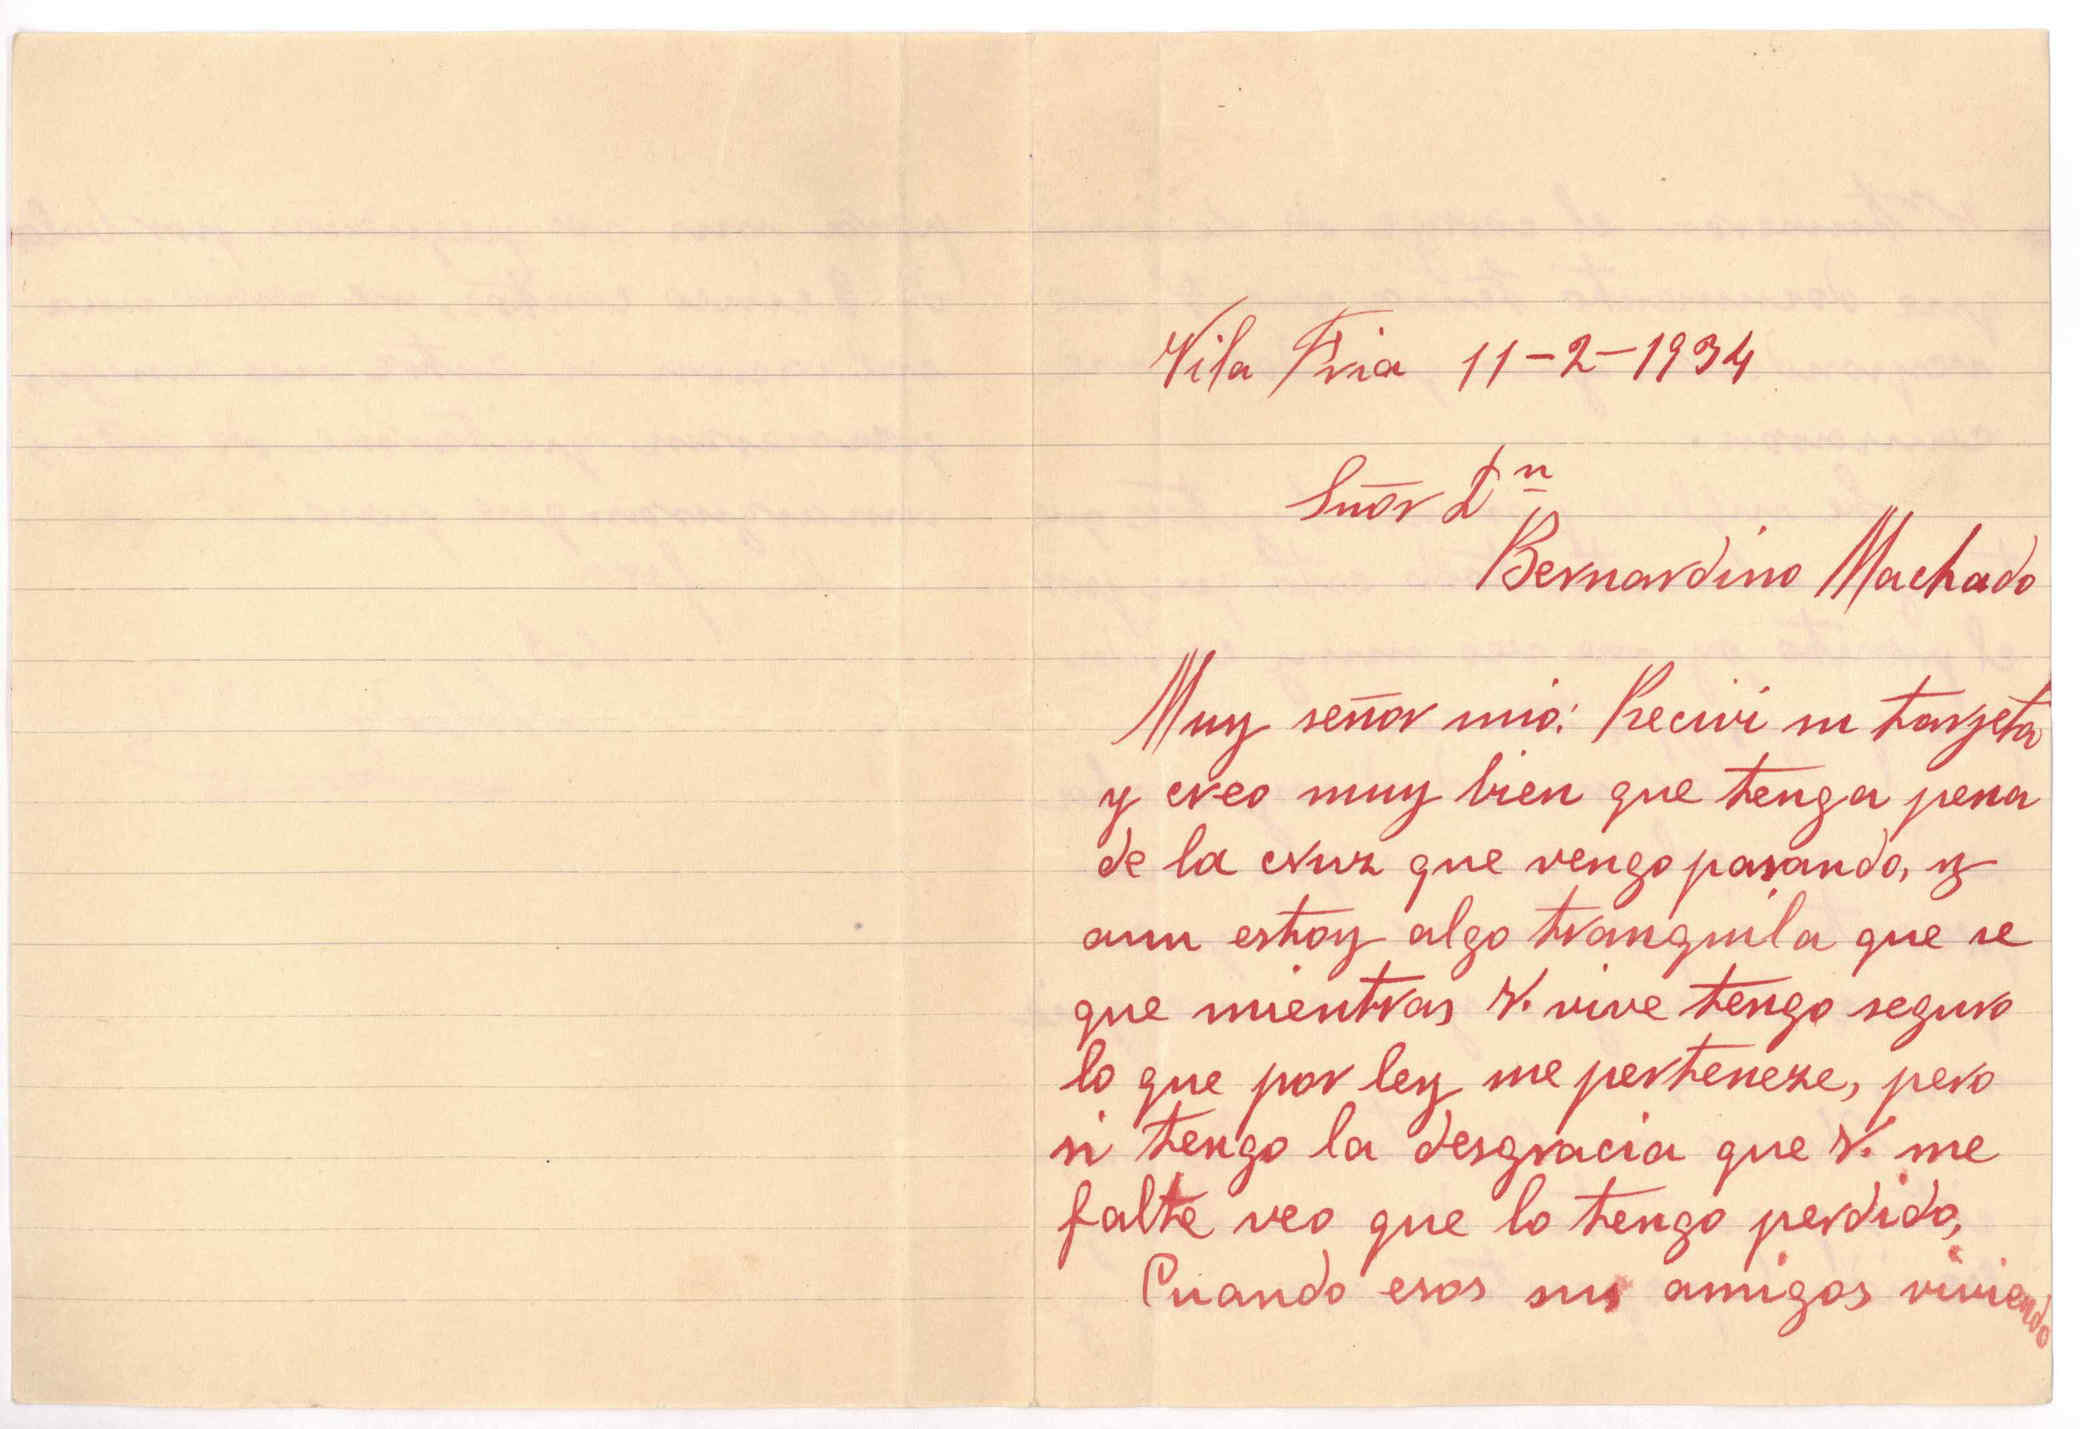 Vila Fria 11-2-1934
Señor Dn
Bernardino Machado
Muy señor mio: Recivi su tarjeta
y creo muy bien que tenga pena
de la cruz que vengo pasando, y
aun estoy algo tranquila que se
que mientras V. vive tengo seguro
lo que por ley me perteneze, pero
si tengo la desgracia que V. me
falte veo que lo tengo perdido,
Cuando esos sus amigos viviendo